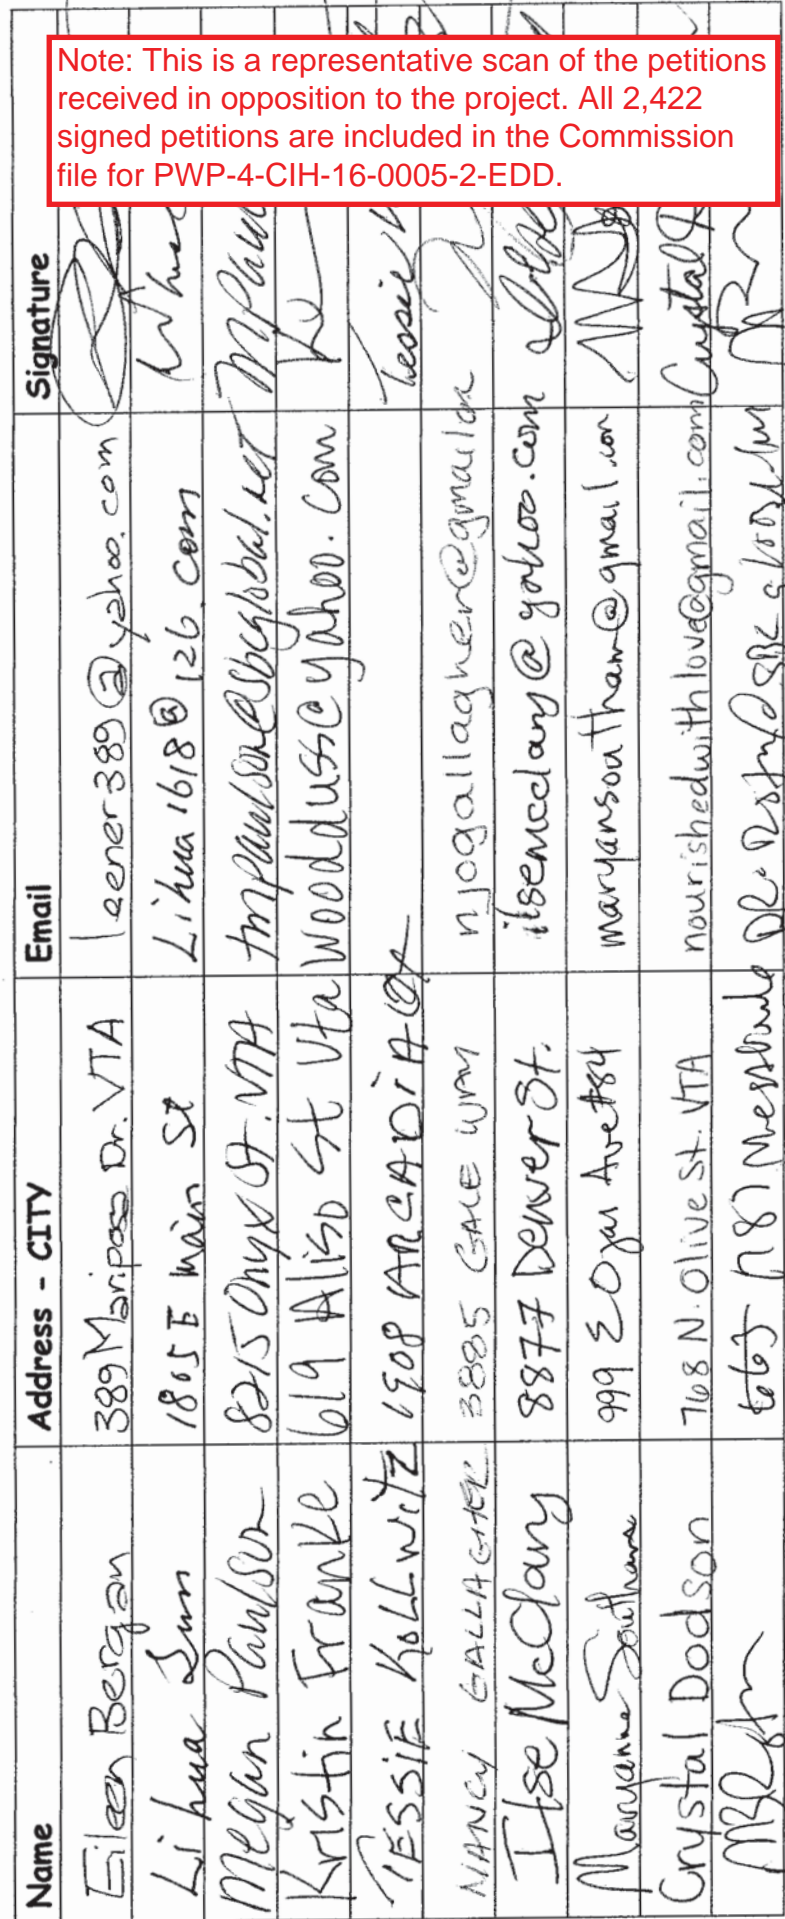 Note: This is a representative scan of the petitions
received in opposition to the project. All 2,422
signed petitions are included in the Commission
file for PWP-4-CIH-16-0005-2-EDD.
Name Address - CITY Email Signature
Eileen Bergan 389 Mariposa Dr. VTA leener389@yahoo.com
Lihua Sun 1805 E Main St Lihua1618@126.com Lihua
Megan Paulson 8215 Onyx St. VTA tmpaulson@sbcglobal.net MPaul
Kristin Franke 619 Aliso St Vta wooddussc yahoo.com
TESSIE KOLLWITZ 1908 ARCADIA Tessie
NANCY GALLAGHER 3885 GALE WAY njogallagher@gmail.com
Ilse McClany 8877 Denver St. ilsemcclany@yahoo.com
Maryanne Southam 999 E Ojai Ave #84 maryansoutham@gmail.com
Crystal Dodson 768 N. Olive St. VTA nourishedwithlove@gmail.com Crystal